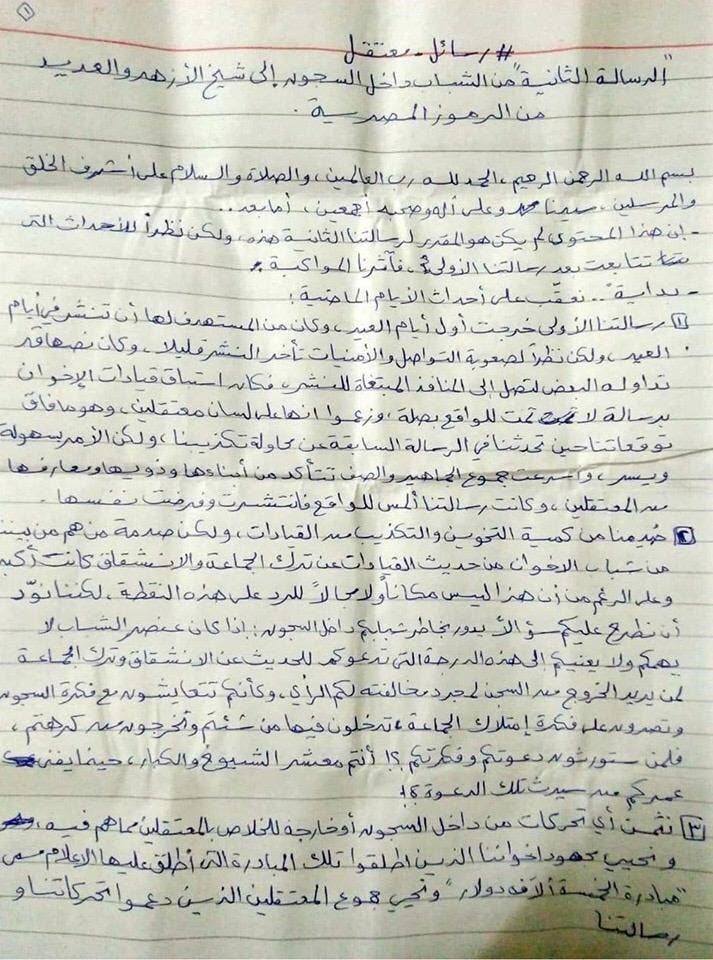 ١
# رسائل - معتقل
"الرسالة الثانية" من الشباب داخل السجون إلى شيخ الأزهر والعديد
من الرموز المصرية .
بسم الله الرحمن الرحيم ، الحمد لله رب العالمين ، والصلاة والسلام على أشرف الخلق
والمرسلين ، سيدنا محمد وعلى آله وصحبه أجمعين ، أما بعد ..
- إن هذا المحتوى لم يكن هو المقرر لرسالتنا الثانية هذه ، ولكن نظراً للأحداث التى
تتابعت بعد رسالتنا الأولى ، فآثرنا المواكبة .
- بداية .. نعقب على أحداث الأيام الماضية :
١ رسالتنا الأولى خرجت أول أيام العيد ، وكان من المستهدف لها أن تنشر في أيام
العيد ، ولكن نظراً لصعوبة التواصل والأمنيات تأخر النشر قليلا ، وكان نصها قد
تداوله البعض لتصل إلى المنافذ المبتغاة للنشر ، فكان استباق قيادات الإخوان
برسالة لا تمت للواقع بصلة ، وزعموا انها على لسان معتقلين ، وهو ما فاق
توقعاتنا حين تحدثنا في الرسالة السابقة عن محاولة تكذيبنا ، ولكن الأمر بسهولة
ويسر ، واسرعت جموع الجماهير والصف تتأكد من أبناءها وذويها ومعارفها
من المعتقلين ، وكانت رسالتنا ألمس للواقع فانتشرت وفرضت نفسها .
٢ صُدمنا من كمية التخوين والتكذيب من القيادات ، ولكن صدمة من هم من بيننا
من شباب الاخوان من حديث القيادات عن ترك الجماعة والانشقاق كانت أكبر
وعلى الرغم من أن هذا ليس مكاناً ولا مجالاً للرد على هذه النقطة ، لكننا نوّد
أن نطرح عليكم سؤالاً يدور بخاطر شبابكم داخل السجون : إذا كان عنصر الشباب لا
يهمكم ولا يعنيكم إلى هذه الدرجة التى تدعوكم للحديث عن الانشقاق وترك الجماعة
لمن يريد الخروج من السجن لمجرد مخالفته لكم الرأي ، وكأنكم تتعايشون مع فكرة السجون
وتصرون على فكرة إمتلاك الجماعة ، تدخلون فيها من شئتم وتخرجون من كرهتم ،
فلمن ستورثون دعوتكم وفكرتكم ؟! أنتم معشر الشيوخ والكبار ، حينما يفنى
عمركم من سيرث تلك الدعوة ؟!
٣ نثمن أي تحركات من داخل السجون أو خارجه للخلاص بالمعتقلين مما هم فيه ،
ونحيي مجهود اخواننا الذين اطلقوا تلك المبادرة التى أطلق عليها الإعلام مسمى
"مبادرة الخمسة آلاف دولار" ونحيي جموع المعتقلين الذين دعموا تحركاتنا و
رسالتنا